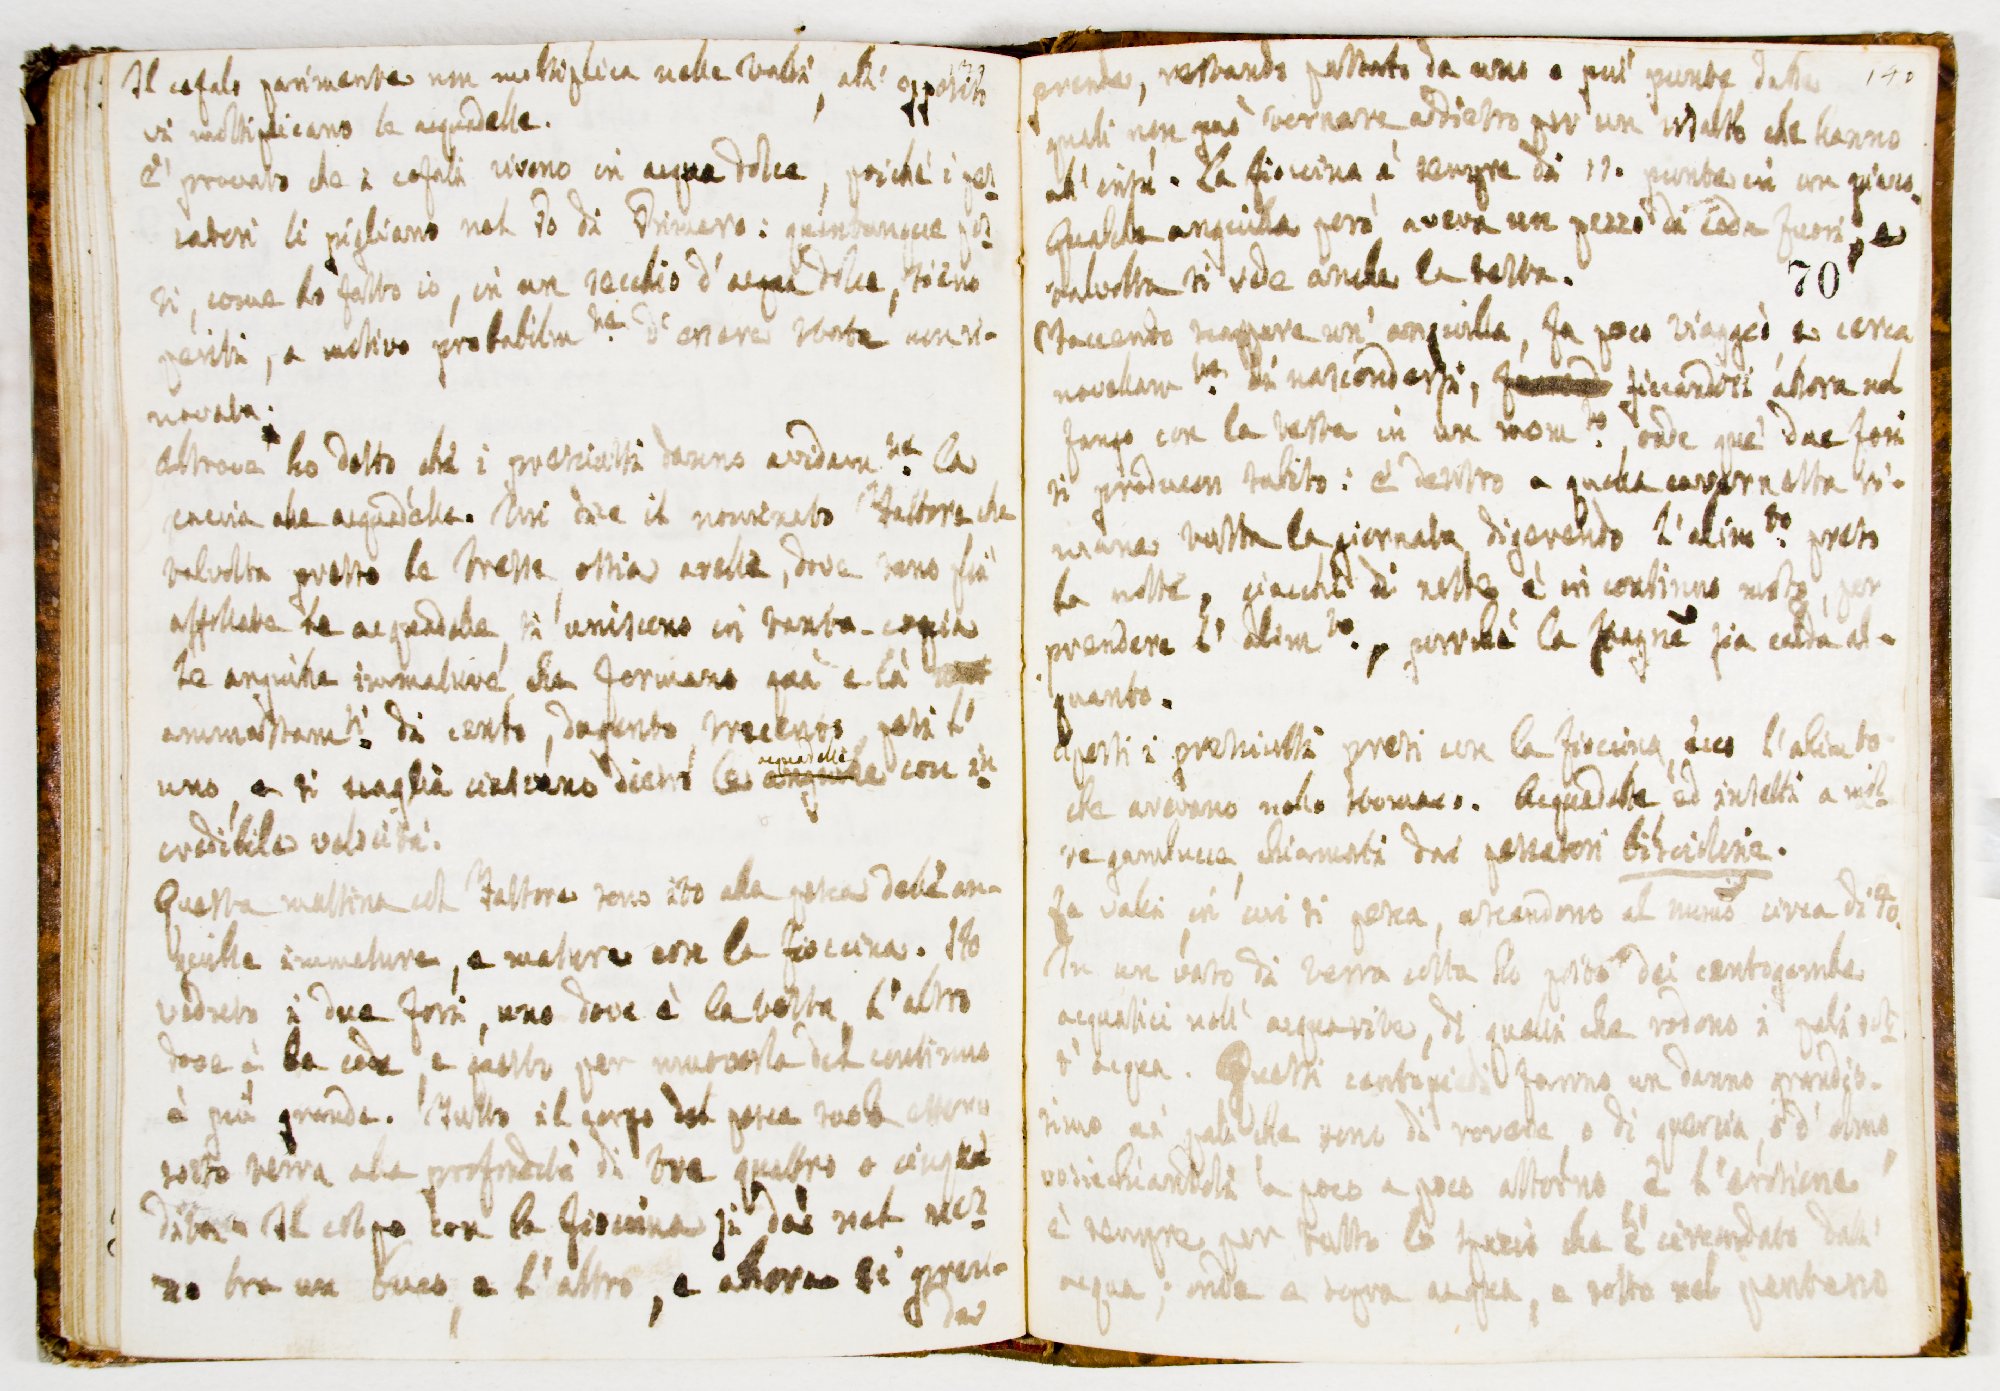 Il cefalo parimente non moltiplica nelle valli, all' opposito
vi moltiplicano le acquadelle.
È provato che i cefali vivono in acqua dolce, poiché i pes-
catori li pigliano nel Po di Primaro: quantunque pos-
ti, come ho fatto io, in un secchio d' acqua dolce, sieno
periti, a motivo probabilm.te d' essere stata non ri-
novata.
Altrove ho detto che i presciutti danno avidam.te la
caccia alle acquadelle. Qui dice il nominato Fattore che
talvolta presso le tresse, ossia arelle, dove sono più
affollate le acquadelle, si uniscono in tanta copia
le anguille immature, che formano quà e là
ammassam.ti di cento, dugento, trecento pesi l'
uno, e si scaglia ciascuno dietro le acquadelle con in-
credibile velocità.
Questa mattina col Fattore sono ito alla pesca dell' an-
guille immature, e mature con la fiocina. Ho
veduto i due fori, uno dove è la testa, l' altro
dove è la coda, e questo per muoversi del continuo
è più grande. Tutto il corpo del pesce suole essere
sotto terra alla profondità di tre quattro o cinque
dita. Il colpo con la fiocina si dà nel mez-
zo tra un buco, e l' altro, e allora si pren-
de
140
prende, restando passato da una o più punte dalle
quali non può tornare addietro per un risalto che hanno
all' insù. La fiocina è sempre di 11. punte in un piano.
Qualche anguilla però aveva un pezzo di coda fuori, e
talvolta si vede anche la testa.
70
Facendo scappare un' anguilla, fa poco viaggio e cerca
novellam.te di nascondersi, ficcandosi allora nel
fango con la testa in un mom.to, onde que' due fori
si producon subito: e dentro a quella cavernetta ri-
mane tutta la giornata digerendo l' alim.to preso
la notte, giacché di notte è in continuo moto, per
prendere l' alim.to, purché la stagne sia calda al-
quanto.
Aperti i presciutti presi con la fiocina, ecco l' alim.to
che avevano nello stomaco. Acquadelle, ed insetti a mil-
le gambucce, chiamati dai pescatori biscioline.
Le valli, in cui si pesca, ascendono al numo circa di 40.
In un vaso di terra cotta ho posto dei centogambe
acquatici nell' acquavite, di quelli che rodono i pali sott'
acqua. Questi centopiedi fanno un danno grandis-
simo ai pali che sono di rovere, o di quercia, o d' olmo
rosicchiandoli a poco a poco attorno, e l' erosione
è sempre per tutto lo spazio che è circondato dall'
acqua; onde e sopra acqua, e sotto nel pantano